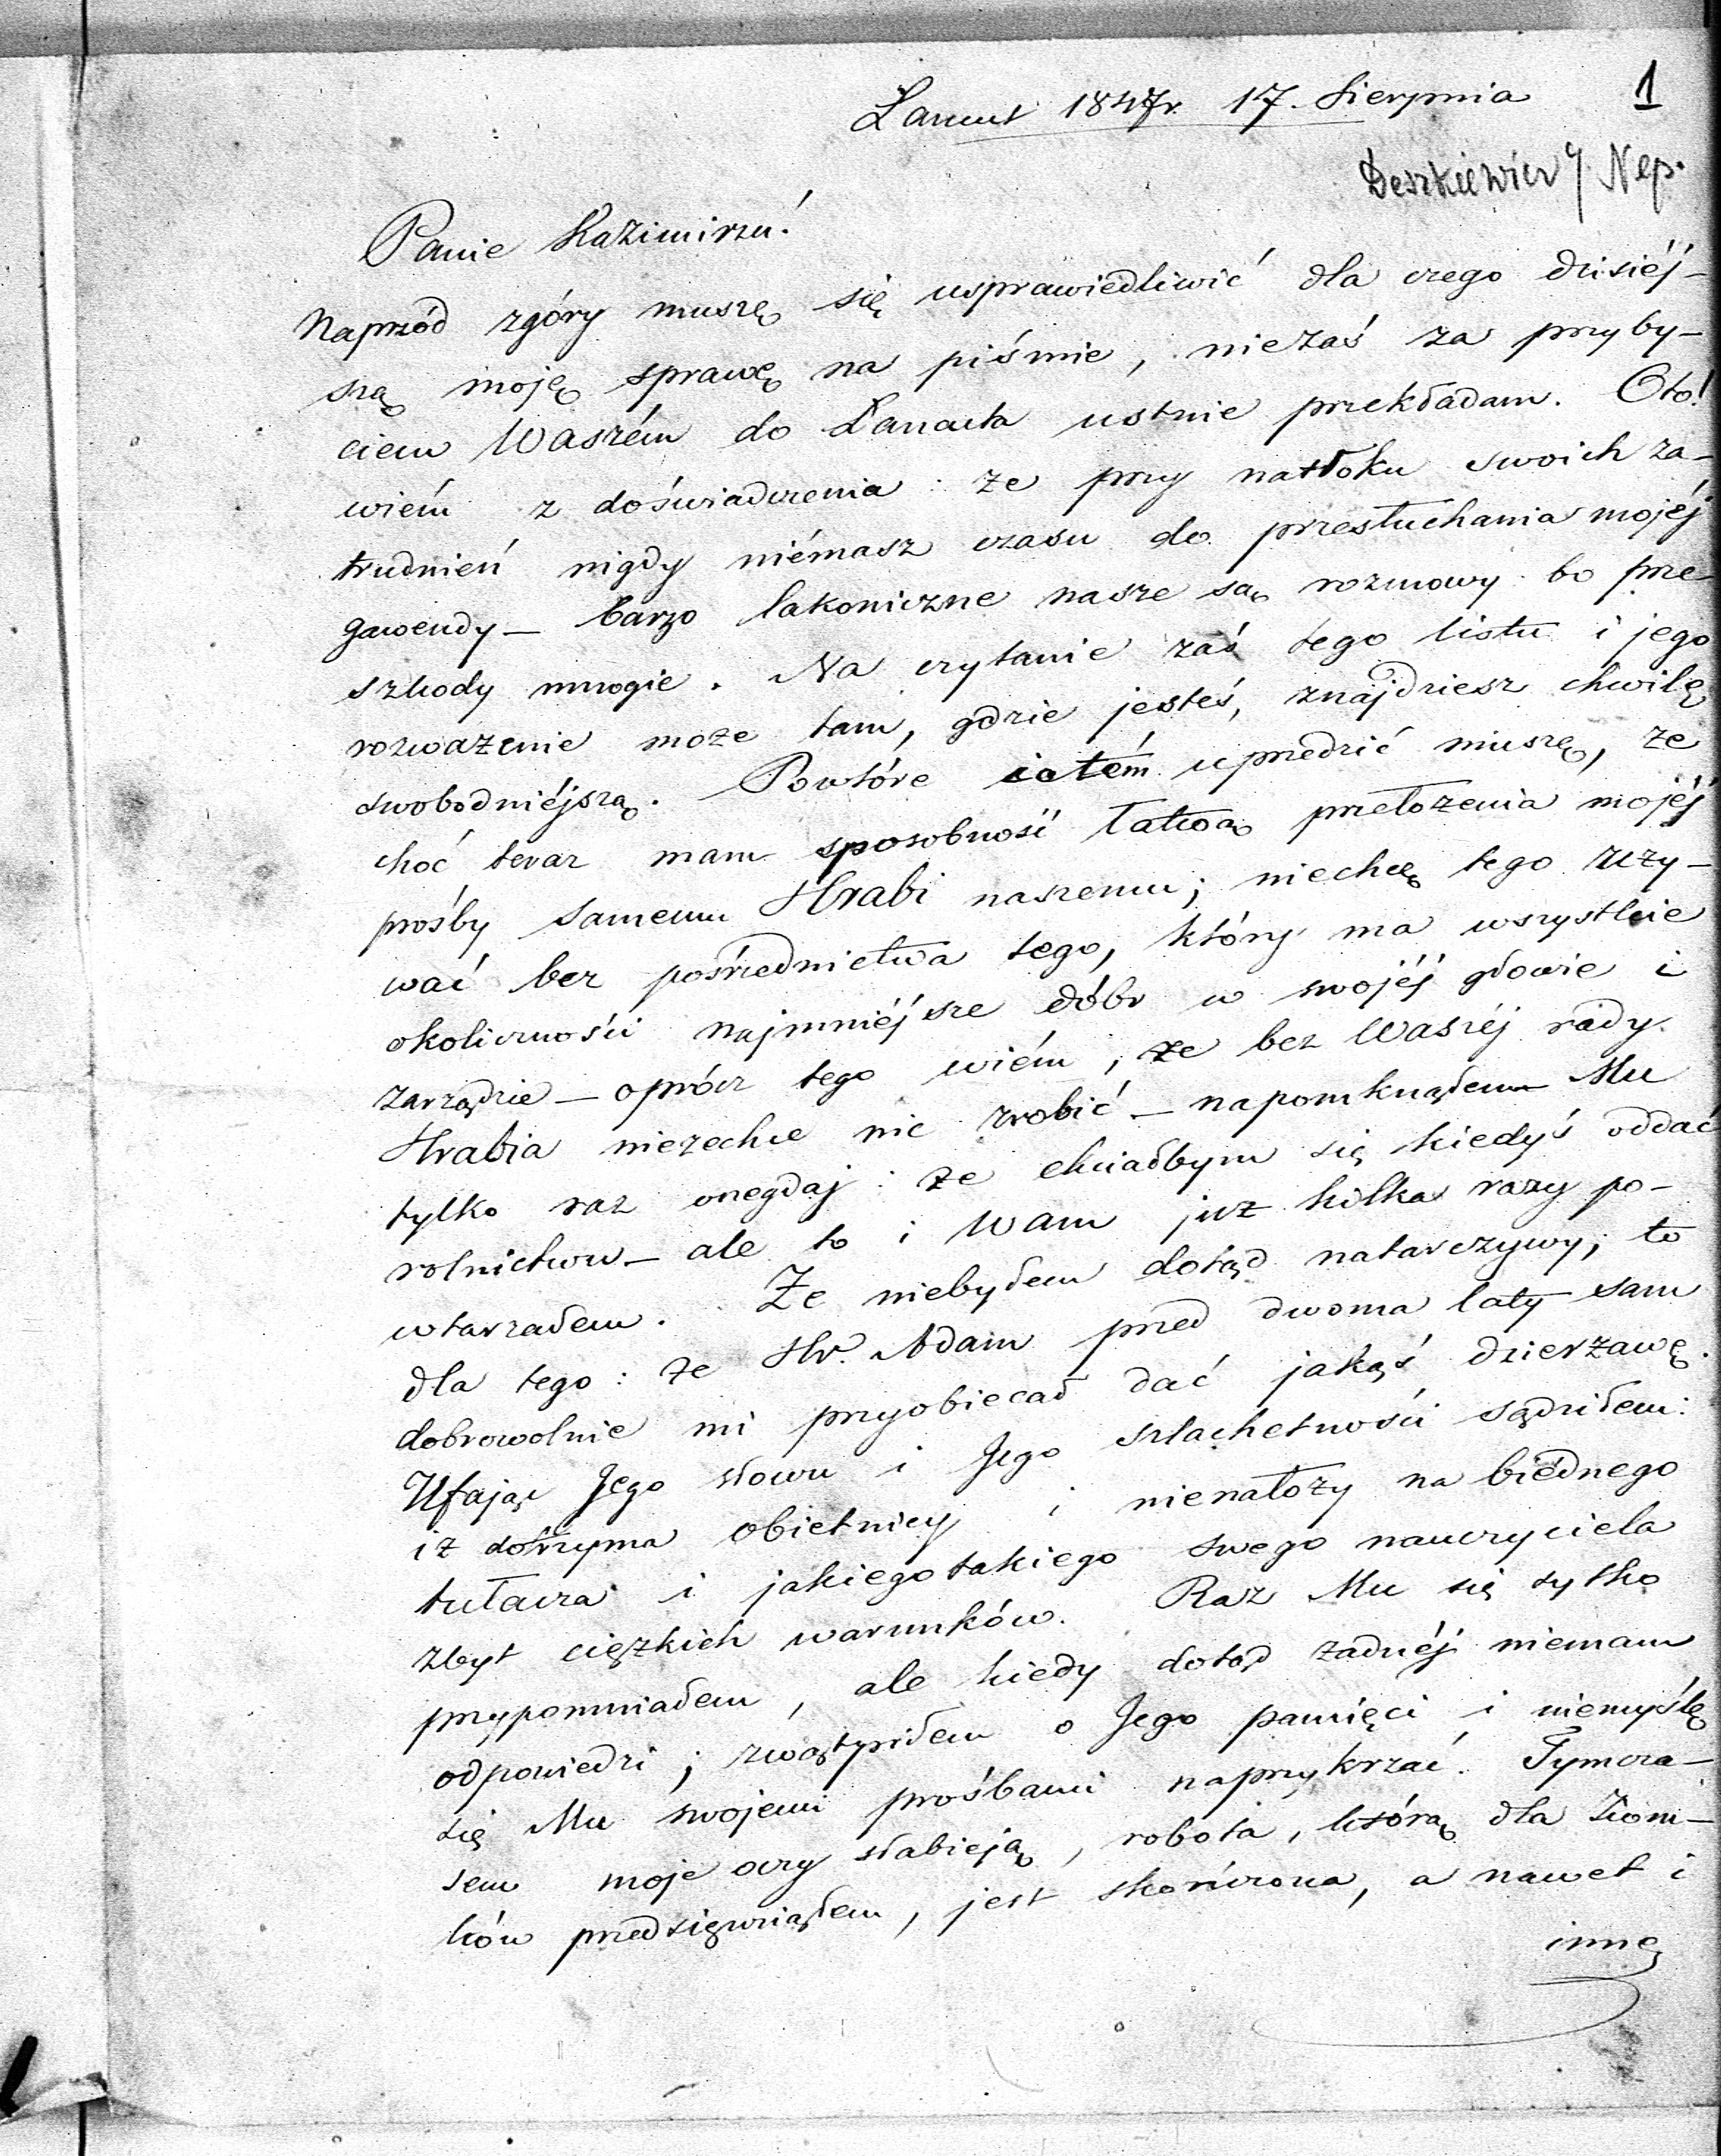 Łancut 1847r. 17. Sierpnia 1
Deszkiewicz J. Nep.
Panie Kazimirzu!
Naprzód zgóry muszę się usprawiedliwić dla czego dzisiéj-
szą moję sprawę na piśmie, niezaś za przyby-
ciem Waszém do Łancuta ustnie przekładam. Oto!
wiém z doświadczenia: że przy natłoku swoich za-
trudnień nigdy niémasz czasu do przesłuchania mojéj
gawendy — barzo lakoniczne nasze są rozmowy bo prze-
szkody mnogie. Na czytanie zaś tego listu i jego
rozważenie może tam, gdzie jesteś, znajdziesz chwilę
swobodniéjszą. Powtóre i o tém uprzedzić muszę, że
choć teraz mam sposobność łatwą przełożenia mojéj
prośby samemu Hrabi naszemu; niechcę tego uży-
wać bez pośrzednictwa tego, który ma wszystkie
okoliczności najmniéjsze dóbr w swojéj głowie i
zarządzie — oprócz tego wiém, że bez Waszéj rady
Hrabia niezechce nic zrobić — napomknąłem Mu
tylko raz onegdaj: że chciałbym się kiedyś oddać
rolnictwu — ale to i Wam już kilka razy po-
wtarzałem. Że niebyłem dotąd natarczywy, to
dla tego: że Hr. Adam przed dwoma laty sam
dobrowolnie mi przyobiecał dać jakąś dzierżawę.
Ufając Jego słowu i Jego szlachetności sądziłem:
iż dotrzyma obietnicy i nienałoży na biédnego
tułacza i jakiegotakiego swego nauczyciela
zbyt ciężkich warunków. Raz Mu się tylko
przypomniałem, ale kiedy dotąd żadnéj niemam
odpowiedzi; zwątpiłem o Jego pamięci i niemyślę
się Mu swojemi prośbami naprzykrzać. Tymcza-
sem moje oczy słabieją, robota, którą dla Ziom-
ków przedsięwziąłem, jest skończona, a nawet i
inne